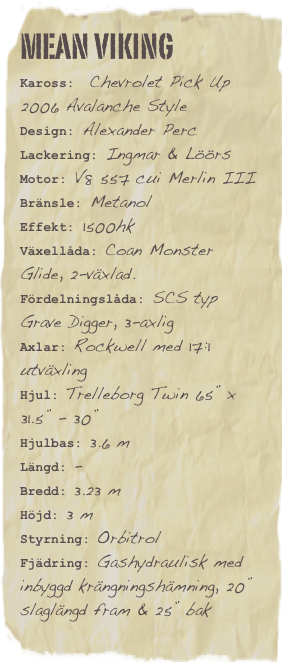 MEAN VIKING
Kaross: Chevrolet Pick Up
2006 Avalanche Style
Design: Alexander Perc
Lackering: Ingmar & Löörs
Motor: V8 557 cui Merlin III
Bränsle: Metanol
Effekt: 1500hk
Växellåda: Coan Monster
Glide, 2-växlad.
Fördelningslåda: SCS typ
Grave Digger, 3-axlig
Axlar: Rockwell med 17:1
utväxling
Hjul: Trelleborg Twin 65" x
31.5" - 30"
Hjulbas: 3.6 m
Längd: -
Bredd: 3.23 m
Höjd: 3 m
Styrning: Orbitrol
Fjädring: Gashydraulisk med
inbyggd krängningshämning, 20"
slaglängd fram & 25" bak